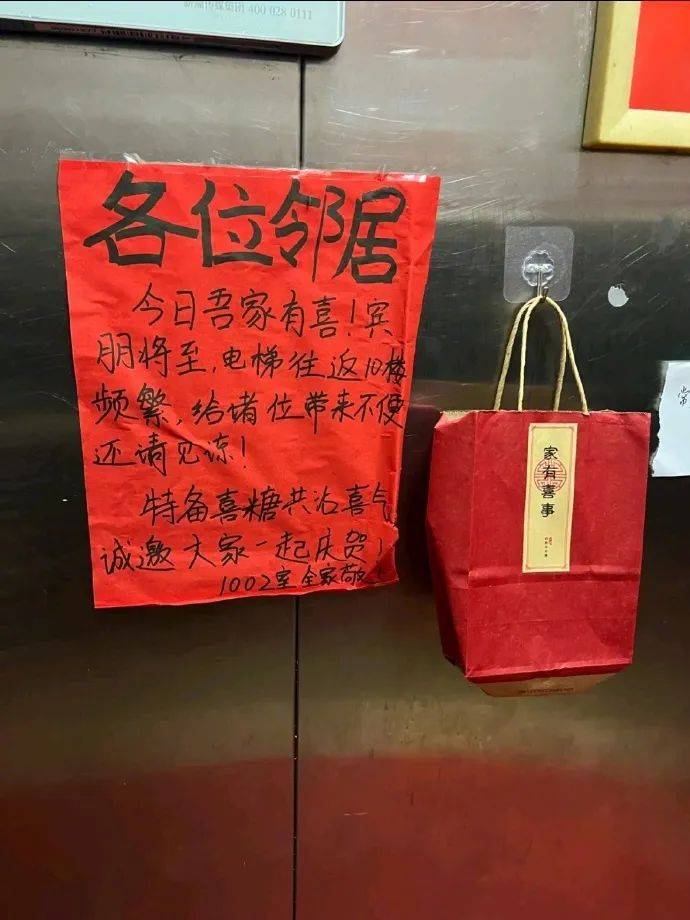 新潮传媒集团 400 028 0111
各位邻居
今日吾家有喜！宾
朋将至，电梯往返10楼
频繁，给诸位带来不便
还请见谅！
特备喜糖共沾喜气
诚邀大家一起庆贺！
1002室全家敬
家有喜事